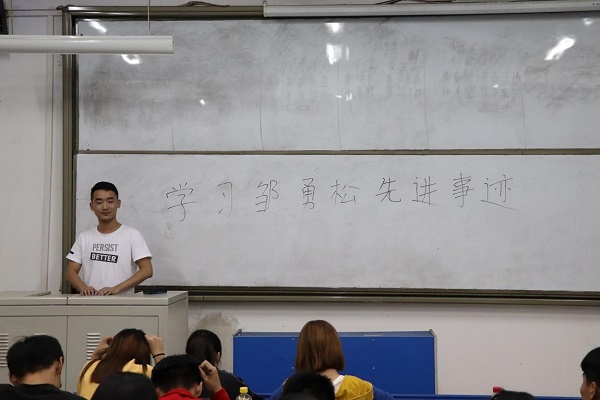 学习邹勇松先进事迹
PERSIST
BETTER